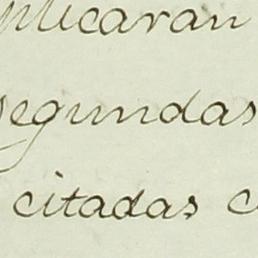 plicaran
segundas
citadas c